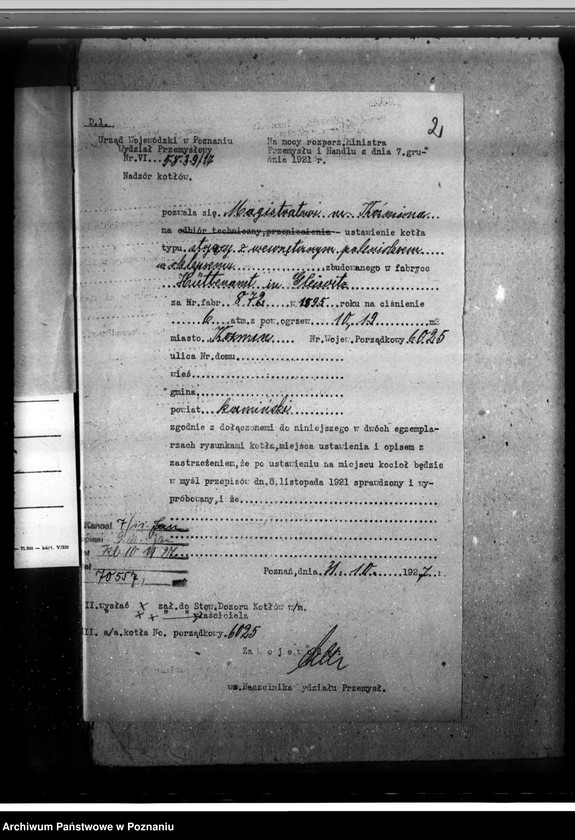 D.1.
2,
Urząd Wojewódzki w Poznaniu
Wydział Przemysłowy
Nr.VI...5839/27
Nadzór kotłów.
Na mocy rozporz.Ministra
Przemysłu i Handlu z dnia 7.gru-
dnia 1921 r.
pozwala się. Magistratowi m. Koźmina
na odbiór techniczny,przeniesienia - ustawienie kotła
typu. stojący z wewnętrznym paleniskiem
zbudowanego w fabryce
Hüttenamt in Gleiwitz
za Nr.fabr. 872 w 1895 roku na ciśnienie
6 atm.z pow.ogrzew. 10,19 m2
miasto Koźmin Nr.Wojew.Porządkowy 6025
ulica Nr.domu
wieś
gmina
powiat koźmiński
zgodnie z dołączonemi do niniejszego w dwóch egzempla-
rzach rysunkami kotła,miejsca ustawienia i opisem z
zastrzeżeniem,że po ustawieniu na miejscu kocioł będzie
w myśl przepisów dn.8.listopada 1921 sprawdzony i wy-
próbowany,i że
70557
Poznań,dnia 31.10. 1927 r.
II.wysłać x zał.do Stow.Dozoru Kotłów w/m.
" x x właściciela
III. a/a.kotła No. porządkowy. 6025
Za Wojewodę
wz.Naczelnika Wydziału Przemysł.
Archiwum Państwowe w Poznaniu